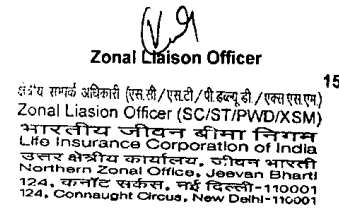 Zonal Liaison Officer
15
क्षेत्रीय सम्पर्क अधिकारी (एस.सी/एस.टी/पी.डब्ल्यू.डी./एक्स.एस.एम.)
Zonal Liasion Officer (SC/ST/PWD/XSM)
भारतीय जीवन बीमा निगम
Life Insurance Corporation of India
उत्तर क्षेत्रीय कार्यालय, जीवन भारती
Northern Zonal Office, Jeevan Bharti
124, कनॉट सर्कस, नई दिल्ली-110001
124, Connaught Circus, New Delhi-110001